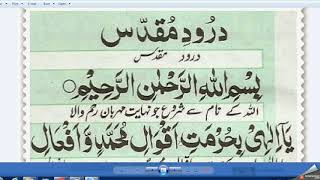 دُرُودِ مُقَدَّس
درود مقدس
بِسْمِ اللهِ الرَّحْمٰنِ الرَّحِيْمِ
اللہ کے نام سے شروع جو نہایت مہربان رحم والا
يَآ اِلٰهِیْ بِحُرْمَتِ اَقْوَالِ مُحَمَّدٍ وَّ اَفْعَالِ